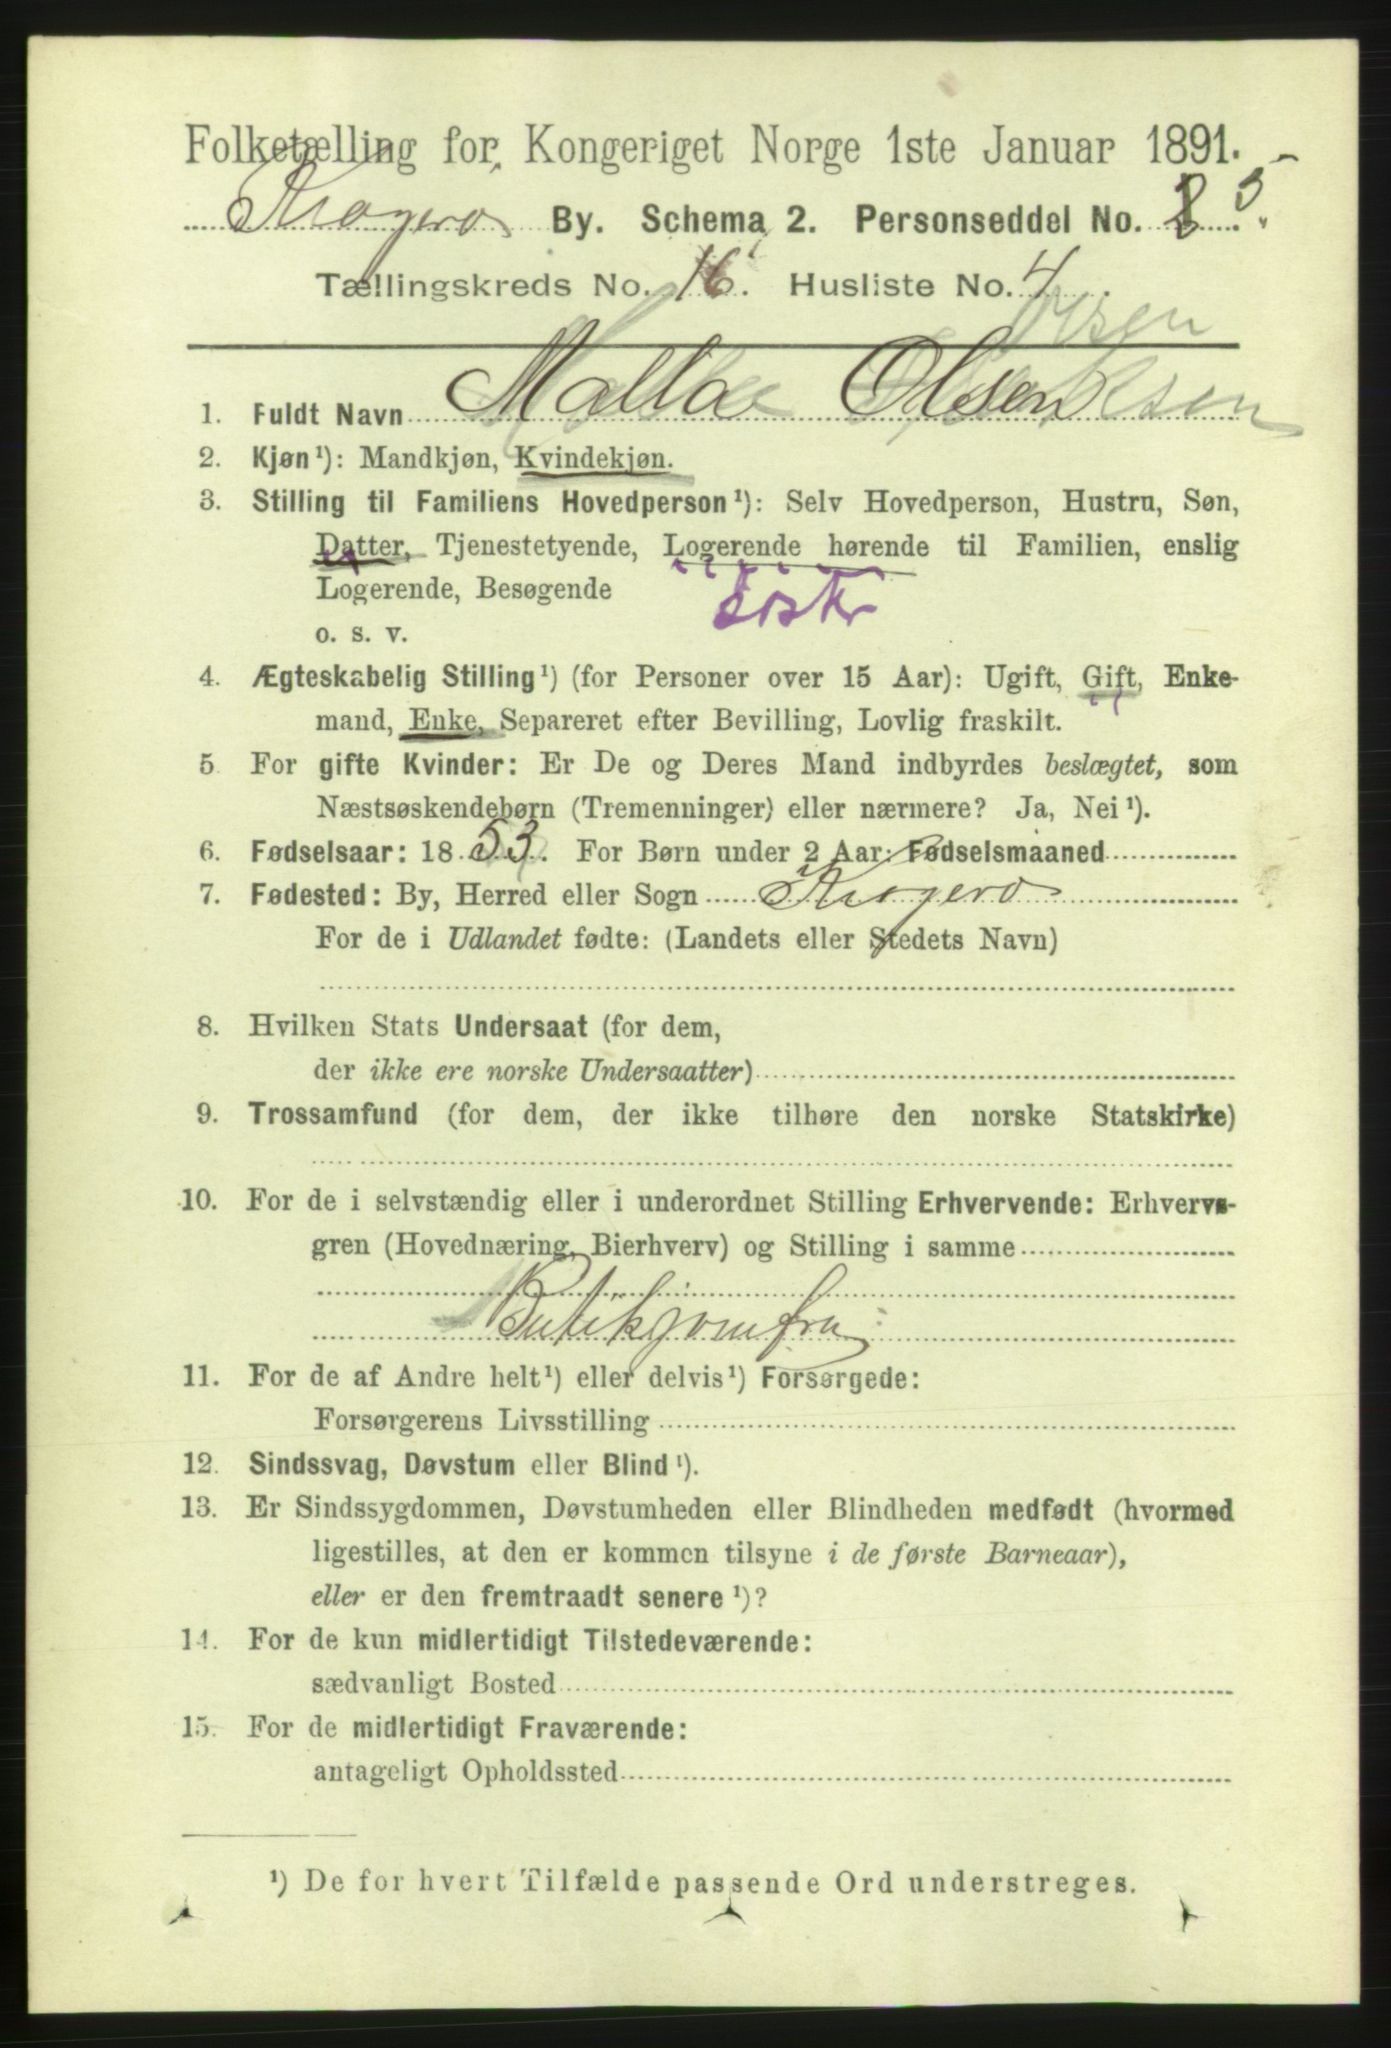 Folketælling for Kongeriget Norge 1ste Januar 1891.
Kragerø By. Schema 2. Personseddel No. 5.
Tællingskreds No. 16. Husliste No. 4.
1. Fuldt Navn Olsen
2. Kjøn¹): Mandkjøn, Kvindekjøn.
3. Stilling til Familiens Hovedperson¹): Selv Hovedperson, Hustru, Søn,
Datter, Tjenestetyende, Logerende hørende til Familien, enslig
Logerende, Besøgende
o. s. v.
4. Ægteskabelig Stilling¹) (for Personer over 15 Aar): Ugift, Gift, Enke-
mand, Enke, Separeret efter Bevilling, Lovlig fraskilt.
5 For gifte Kvinder: Er De og Deres Mand indbyrdes beslægtet, som
Næstsøskendebørn (Tremenninger) eller nærmere? Ja, Nei¹).
6. Fødselsaar: 1853. For Børn under 2 Aar: Fødselsmaaned
7. Fødested: By, Herred eller Sogn Kragerø
For de i Udlandet fødte: (Landets eller Stedets Navn)
8. Hvilken Stats Undersaat (for dem,
der ikke ere norske Undersaatter)
9. Trossamfund (for dem, der ikke tilhøre den norske Statskirke)
10. For de i selvstændig eller i underordnet Stilling Erhvervende: Erhvervs-
gren (Hovednæring, Bierhverv) og Stilling i samme
Butikjomfru
11. For de af Andre helt¹) eller delvis¹) Forsørgede:
Forsørgerens Livsstilling
12. Sindssvag, Døvstum eller Blind¹).
13. Er Sindssygdommen, Døvstumheden eller Blindheden medfødt (hvormed
ligestilles, at den er kommen tilsyne i de første Barneaar),
eller er den fremtraadt senere¹)?
14. For de kun midlertidigt Tilstedeværende:
sædvanligt Bosted
15. For de midlertidigt Fraværende:
antageligt Opholdssted
¹) De for hvert Tilfælde passende Ord understreges.